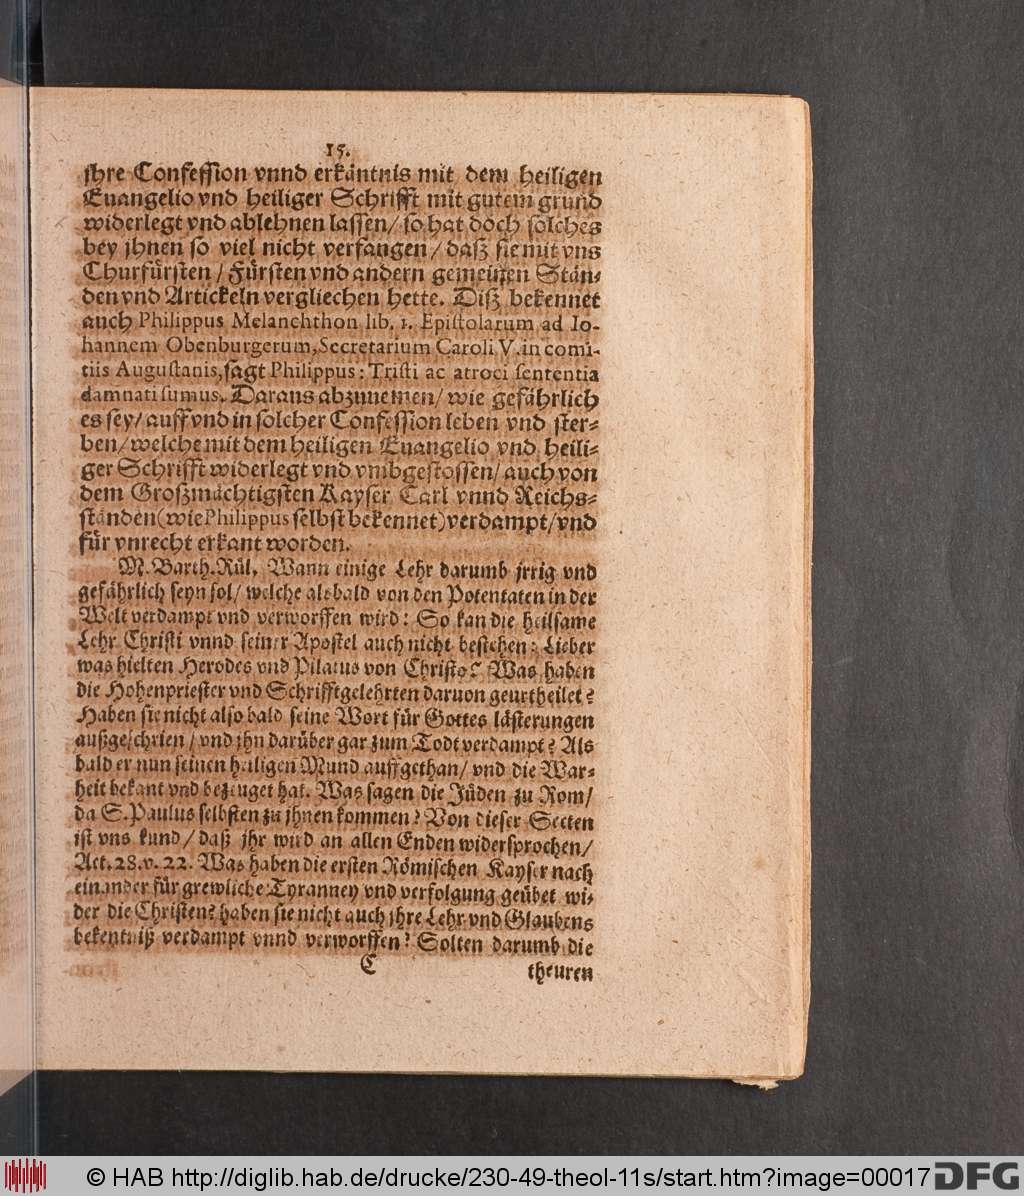 15.
jhre Confession vnnd erkäntnis mit dem heiligen
Euangelio vnd heiliger Schrifft mit gutem grund
widerlegt vnd ablehnen lassen/ so hat doch solches
bey jhnen so viel nicht verfangen/ daß sie mit vns
Churfürsten/ Fürsten vnd andern gemeinen Stän-
den vnd Artickeln vergliechen hette. Diß bekennet
auch Philippus Melanchthon lib. 1. Epistolarum ad Io-
hannem Obenburgerum, Secretarium Caroli V. in comi-
tiis Augustanis, sagt Philippus: Tristi ac atroci sententia
damnati sumus. Daraus abzunemen/ wie gefährlich
es sey/ auff vnd in solcher Confession leben vnd ster-
ben/ welche mit dem heiligen Euangelio vnd heili-
ger Schrifft widerlegt vnd vmbgestossen/ auch von
dem Großmächtigsten Kayser Carl vnnd Reichs-
ständen (wie Philippus selbst bekennet) verdampt/ vnd
für vnrecht erkant worden.
M. Barth. Rül. Wann einige Lehr darumb jrrig vnd
gefährlich seyn sol/ welche alsbald von den Potentaten in der
Welt verdampt vnd verworffen wird: So kan die heilsame
Lehr Christi vnnd seiner Apostel auch nicht bestehen: Lieber
was hielten Herodes vnd Pilatus von Christo? Was haben
die Hohenpriester vnd Schrifftgelehrten daruon geurtheilet?
Haben sie nicht also bald seine Wort für Gottes lästerungen
außgeschrien/ vnd jhn darüber gar zum Todt verdampt? Als
bald er nun seinen heiligen Mund auffgethan/ vnd die War-
heit bekant vnd bezeuget hat. Was sagen die Jüden zu Rom/
da S. Paulus selbsten zu jhnen kommen? Von dieser Secten
ist vns kund/ daß jhr wird an allen Enden widersprochen/
Act. 28. v. 22. Was haben die ersten Römischen Kayser nach
einander für grewliche Tyranney vnd verfolgung geübet wi-
der die Christen? haben sie nicht auch jhre Lehr vnd Glaubens
bekentniß verdampt vnnd verworffen? Solten darumb die
C theuren
© HAB http://diglib.hab.de/drucke/230-49-theol-11s/start.htm?image=00017 DFG